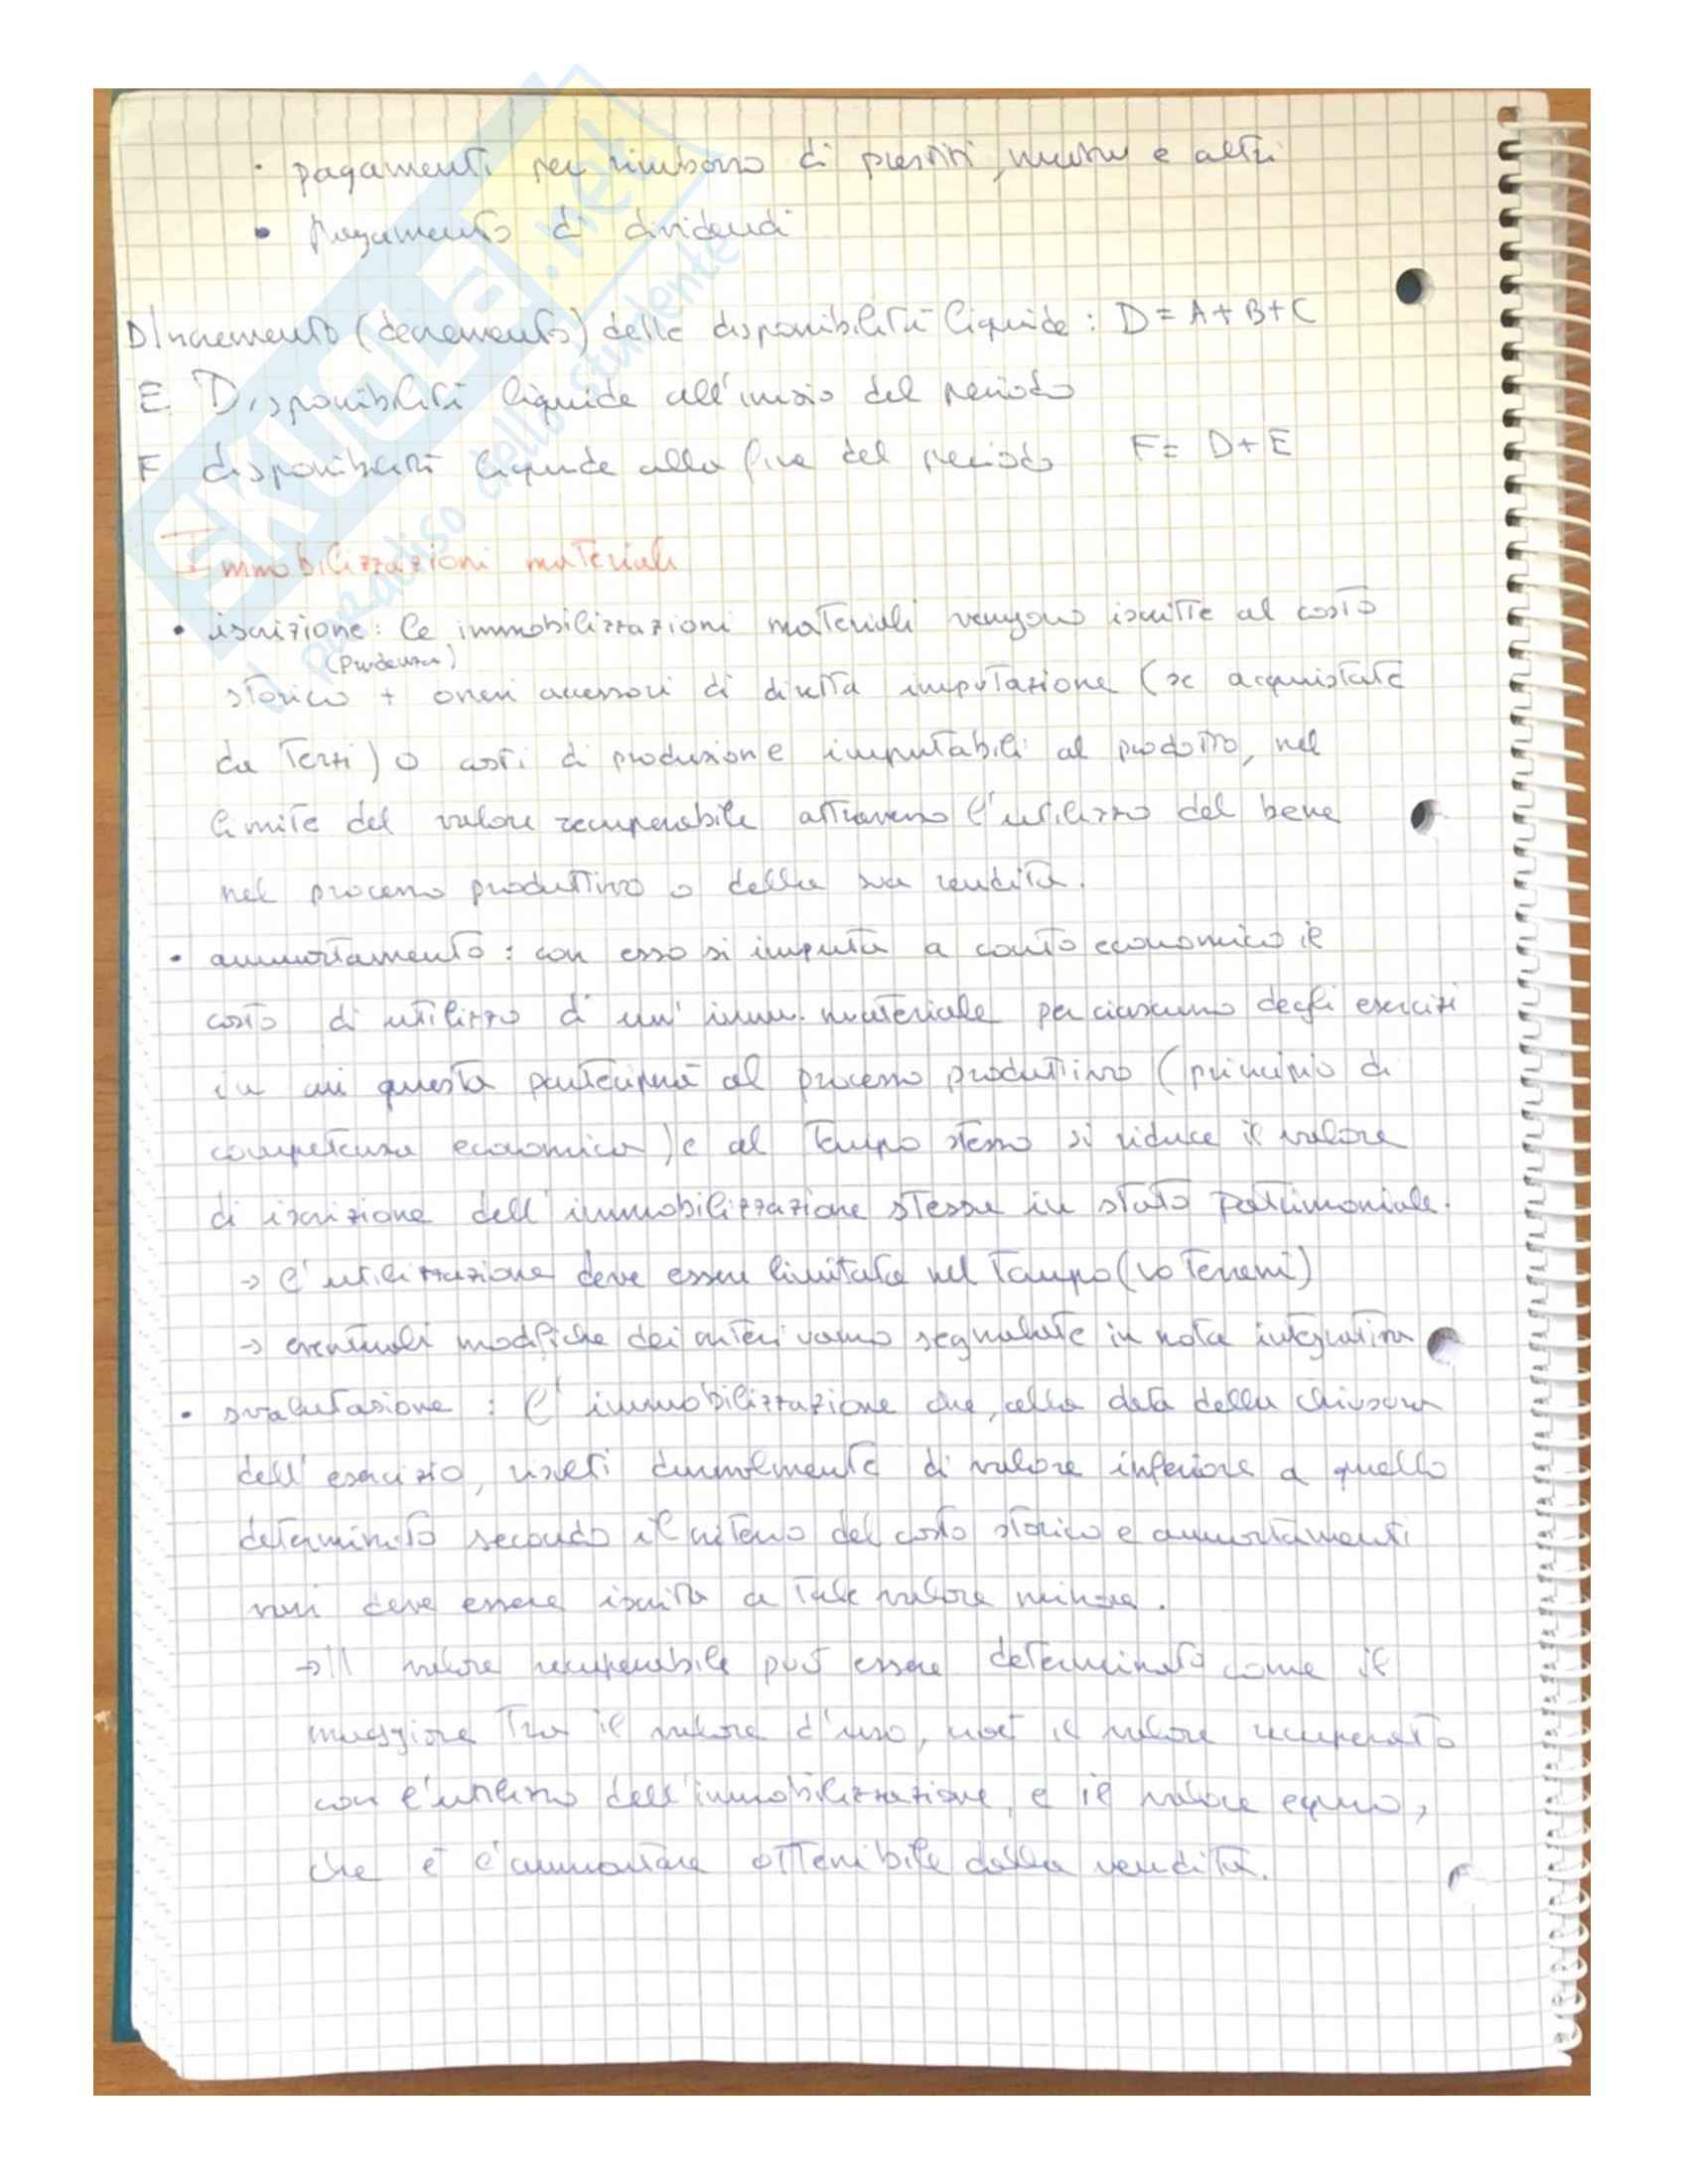 • pagamenti per rimborso di prestiti, mutui e altri
• pagamento di dividendi
D Incremento (decremento) delle disponibilità liquide: D = A+B+C
E Disponibilità liquide all'inizio del periodo
F disponibilità liquide alla fine del periodo F = D+E
Immobilizzazioni materiali
• iscrizione: le immobilizzazioni materiali vengono iscritte al costo
(Prudenza)
storico + oneri accessori di diretta imputazione (se acquistate
da terzi) o costi di produzione imputabili al prodotto, nel
limite del valore recuperabile attraverso l'utilizzo del bene
nel processo produttivo o della sua vendita.
• ammortamento: con esso si imputa a conto economico il
costo di utilizzo di un' imm. materiale per ciascuno degli esercizi
in cui questa parteciperà al processo produttivo (principio di
competenza economica) e al tempo stesso si riduce il valore
di iscrizione dell'immobilizzazione stessa in stato patrimoniale.
→ l'utilizzazione deve essere limitata nel tempo (no terreni)
→ eventuali modifiche dei criteri vanno segnalate in nota integrativa
• svalutazione: l'immobilizzazione che, alla data della chiusura
dell'esercizio, risulti durevolmente di valore inferiore a quello
determinato secondo il criterio del costo storico e ammortamenti
vari deve essere iscritta a tale valore minore.
→ Il valore recuperabile può essere determinato come il
maggiore tra il valore d'uso, cioè il valore recuperato
con l'utilizzo dell'immobilizzazione, e il valore equo,
che è l'ammontare ottenibile dalla vendita.
SKUOLA.net
il paradiso dello studente